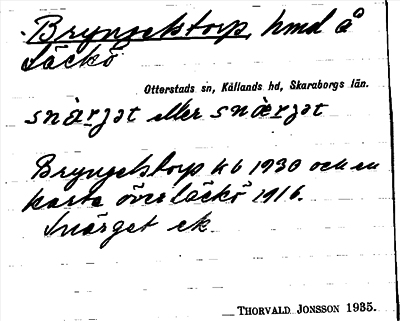 Bryngelstorp, hmd å
Läckö
Otterstads sn, Kållands hd, Skaraborgs län.
snärjət eller snærjət
Bryngelstorp kb 1930 och en
karta över Läckö 1916.
Snärget ek.
THORVALD JONSSON 1935.